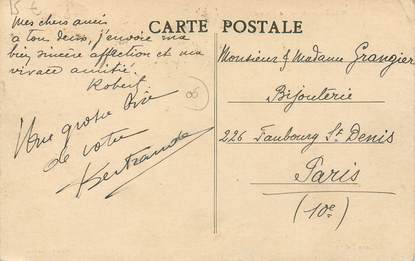 15 €
CARTE POSTALE
Mes chers amis
à tou deux, j'envoie ma
bien sincère affection et ma
vivace amitié.
Robert
Une grosse bise
de votre
Bertrande
06
Monsieur & Madame Grangier
Bijouterie
226 Faubourg St Denis
Paris
(10e)